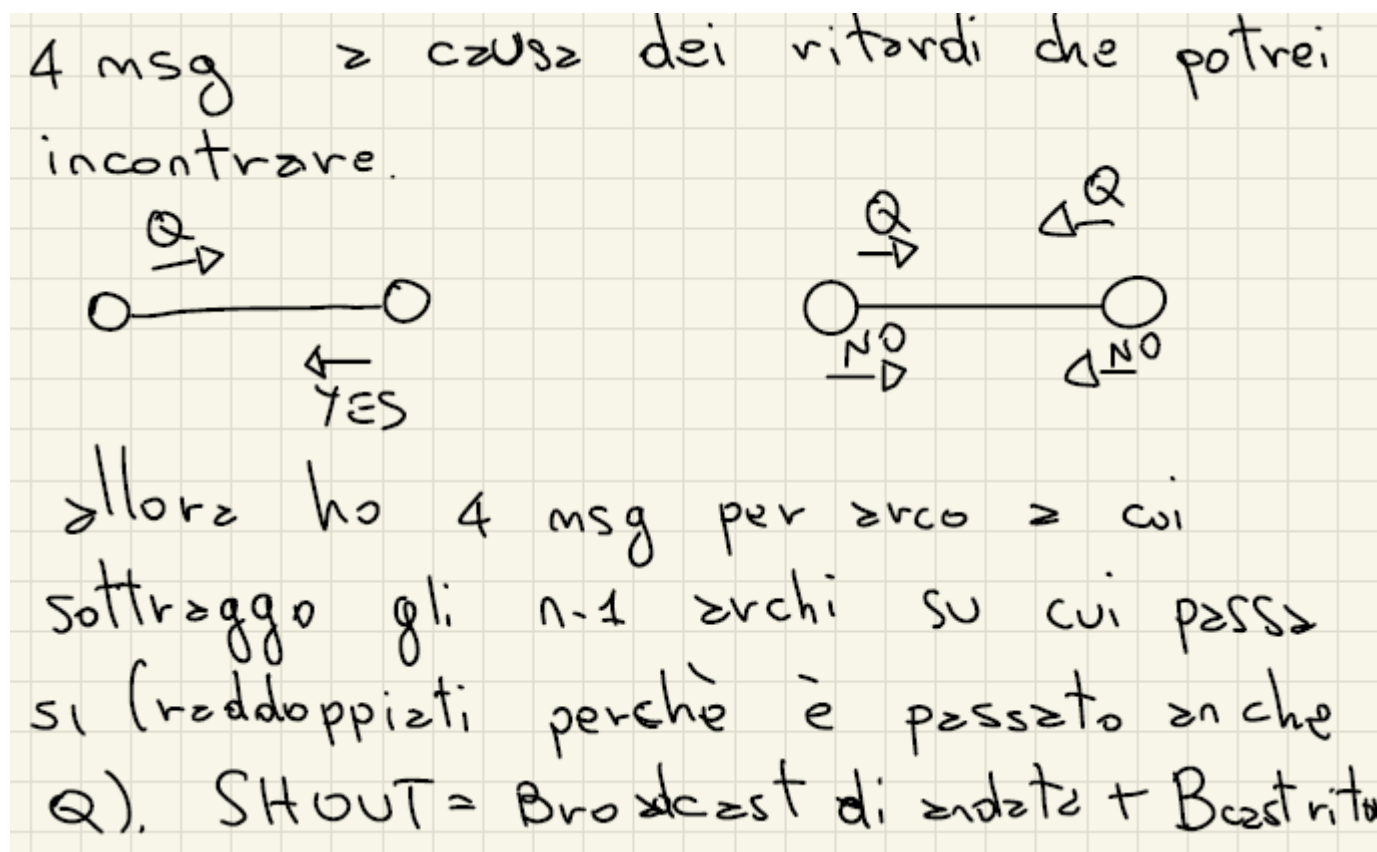 4 msg a causa dei ritardi che potrei
incontrare.
Q Q Q
YES NO NO
allora ho 4 msg per arco a cui
sottraggo gli n-1 archi su cui passa
si (raddoppiati perchè è passato anche
Q). SHOUT = Broadcast di andata + Bcast rito